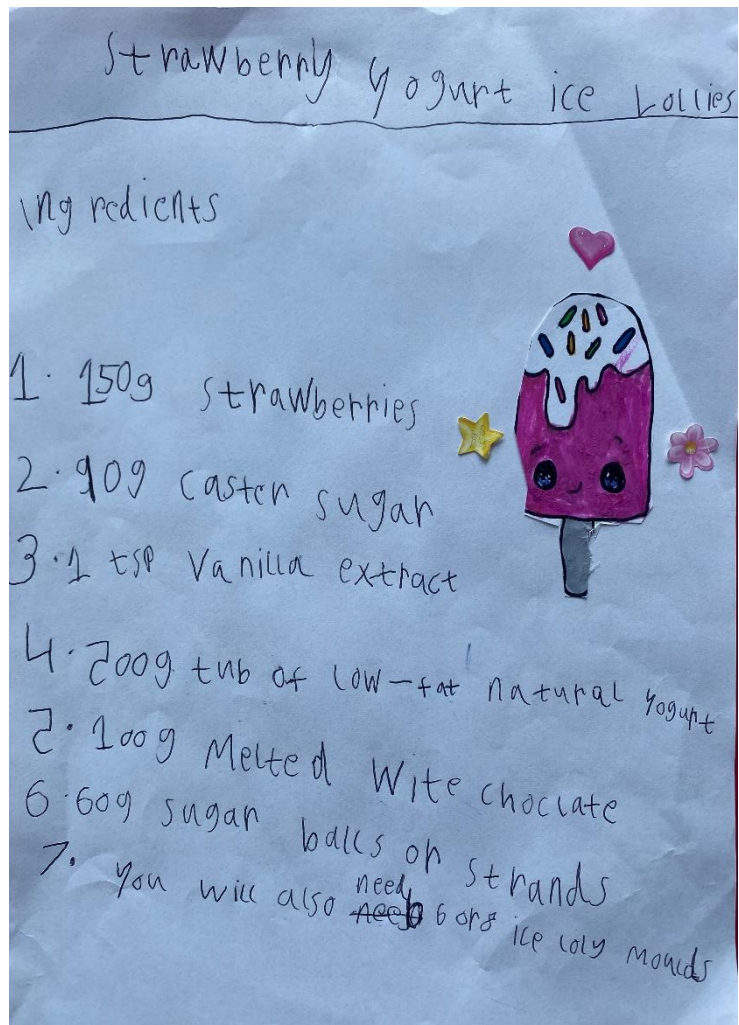 Strawberry Yogurt ice Lollies
ingredients
1. 150g strawberries
2. 90g caster sugar
3. 1 tsp vanilla extract
4. 500g tub of low-fat natural yogurt
5. 100g Melted Wite choclate
6. 60g sugar balls or strands
7. You will also need 6 or 8 ice loly moulds